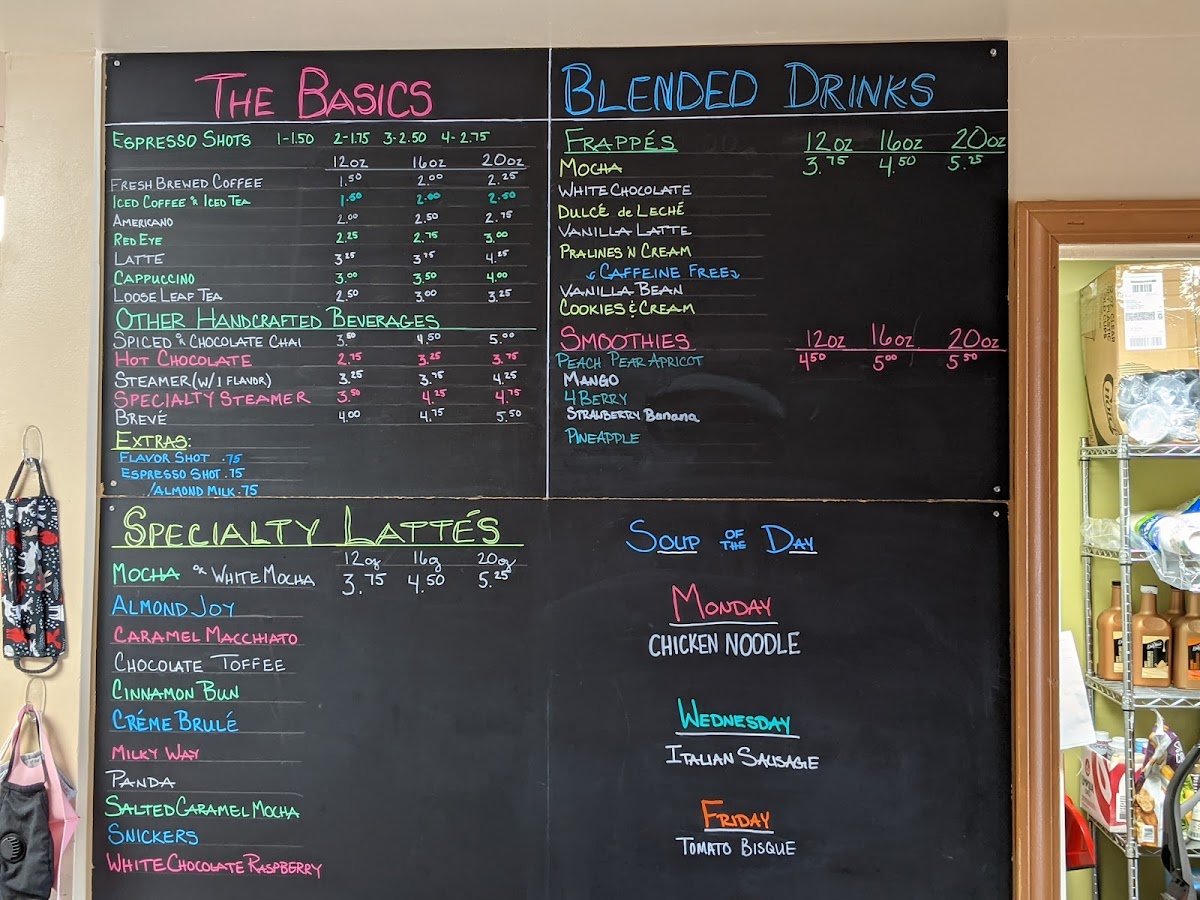 THE BASICS
ESPRESSO SHOTS 1-1.50 2-1.75 3-2.50 4-2.75
12oz 16oz 20oz
FRESH BREWED COFFEE 1.50 2.00 2.25
ICED COFFEE & ICED TEA 1.50 2.00 2.50
AMERICANO 2.00 2.50 2.75
RED EYE 2.25 2.75 3.00
LATTE 3.25 3.75 4.25
CAPPUCCINO 3.00 3.50 4.00
LOOSE LEAF TEA 2.50 3.00 3.25
OTHER HANDCRAFTED BEVERAGES
SPICED & CHOCOLATE CHAI 3.50 4.50 5.00
HOT CHOCOLATE 2.75 3.25 3.75
STEAMER (W/1 FLAVOR) 3.25 3.75 4.25
SPECIALTY STEAMER 3.50 4.25 4.75
BREVÉ 4.00 4.75 5.50
EXTRAS:
FLAVOR SHOT .75
ESPRESSO SHOT .75
/ALMOND MILK .75
BLENDED DRINKS
FRAPPÉS 12oz 16oz 20oz
MOCHA 3.75 4.50 5.25
WHITE CHOCOLATE
DULCÉ de LECHÉ
VANILLA LATTE
PRALINES 'N CREAM
↓CAFFEINE FREE↓
VANILLA BEAN
COOKIES & CREAM
SMOOTHIES 12oz 16oz 20oz
PEACH PEAR APRICOT 4.50 5.00 5.50
MANGO
4 BERRY
STRAWBERRY Banana
PINEAPPLE
SPECIALTY LATTÉS
12oz 16oz 20oz
MOCHA or WHITE MOCHA 3.75 4.50 5.25
ALMOND JOY
CARAMEL MACCHIATO
CHOCOLATE TOFFEE
CINNAMON BUN
CRÉME BRULÉ
MILKY WAY
PANDA
SALTED CARAMEL MOCHA
SNICKERS
WHITE CHOCOLATE RASPBERRY
SOUP OF THE DAY
MONDAY
CHICKEN NOODLE
WEDNESDAY
ITALIAN SAUSAGE
FRIDAY
TOMATO BISQUE